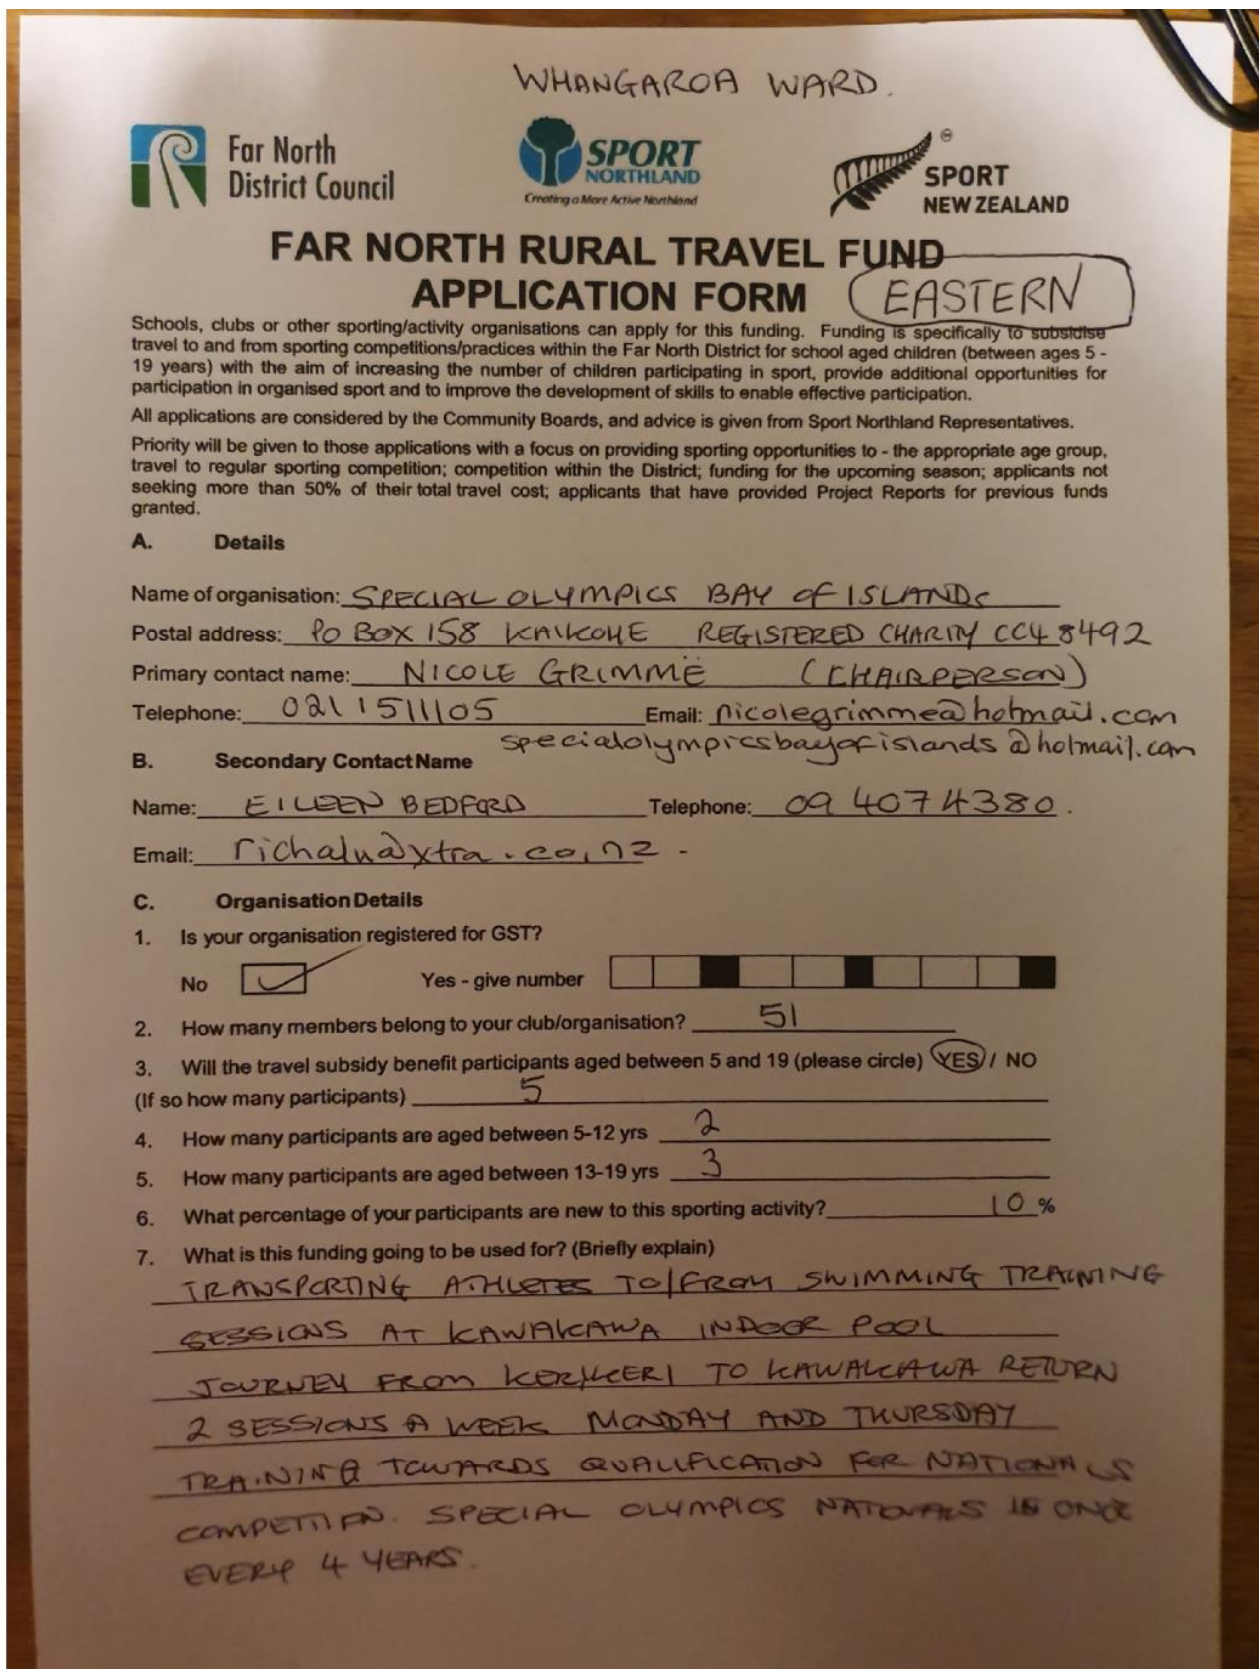 WHANGAROA WARD.
Far North
District Council
SPORT
NORTHLAND
Creating a More Active Northland
SPORT
NEW ZEALAND
FAR NORTH RURAL TRAVEL FUND
APPLICATION FORM EASTERN
Schools, clubs or other sporting/activity organisations can apply for this funding. Funding is specifically to subsidise
travel to and from sporting competitions/practices within the Far North District for school aged children (between ages 5 -
19 years) with the aim of increasing the number of children participating in sport, provide additional opportunities for
participation in organised sport and to improve the development of skills to enable effective participation.
All applications are considered by the Community Boards, and advice is given from Sport Northland Representatives.
Priority will be given to those applications with a focus on providing sporting opportunities to - the appropriate age group,
travel to regular sporting competition; competition within the District; funding for the upcoming season; applicants not
seeking more than 50% of their total travel cost; applicants that have provided Project Reports for previous funds
granted.
A. Details
Name of organisation: SPECIAL OLYMPICS BAY OF ISLANDS
Postal address: PO BOX 158 KAIKOHE REGISTERED CHARITY CC48492
Primary contact name: NICOLE GRIMME (CHAIRPERSON)
Telephone: 021 1511105 Email: nicolegrimme@hotmail.com
specialolympicsbayofislands@hotmail.com
B. Secondary Contact Name
Name: EILEEN BEDFORD Telephone: 09 4074380.
Email: richaln@xtra.co.nz -
C. Organisation Details
1. Is your organisation registered for GST?
No ✓ Yes - give number
2. How many members belong to your club/organisation? 51
3. Will the travel subsidy benefit participants aged between 5 and 19 (please circle) YES / NO
(If so how many participants) 5
4. How many participants are aged between 5-12 yrs 2
5. How many participants are aged between 13-19 yrs 3
6. What percentage of your participants are new to this sporting activity? 10 %
7. What is this funding going to be used for? (Briefly explain)
TRANSPORTING ATHLETES TO/FROM SWIMMING TRAINING
SESSIONS AT KAWAKAWA INDOOR POOL
JOURNEY FROM KERIKERI TO KAWAKAWA RETURN
2 SESSIONS A WEEK MONDAY AND THURSDAY
TRAINING TOWARDS QUALIFICATION FOR NATIONALS
COMPETITION. SPECIAL OLYMPICS NATIONALS IS ONCE
EVERY 4 YEARS.